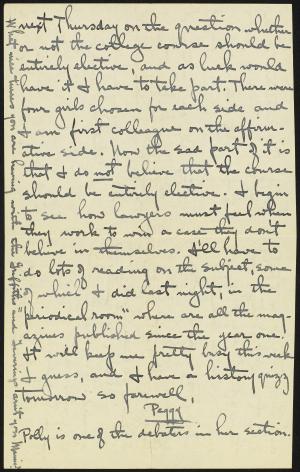 next Thursday on the question whether
or not the college course should be
entirely elective, and as luck would
have it I have to take part. There were
four girls chosen for each side and
I am first colleague on the affirm-
itive side. Now the sad part of it is
that I do not believe that the course
should be entirely elective. I begin
to see how lawyers must feel when
they work to win a case they don't
believe in themselves. I'll have to
do lots of reading on the subject, some
of which I did last night, in the
"periodical room" where are all the mag-
azines published since the year one.
It will keep me pretty busy this week
I guess, and I have a history quizz
tomorrow so farewell,
Peggy
Polly is one of the debaters in her section.
What nice times you are having with the Griffiths and